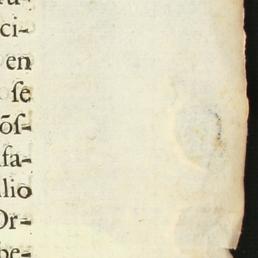 ci-
en
ſe
õſ-
ſa-
lio
Or-
be-